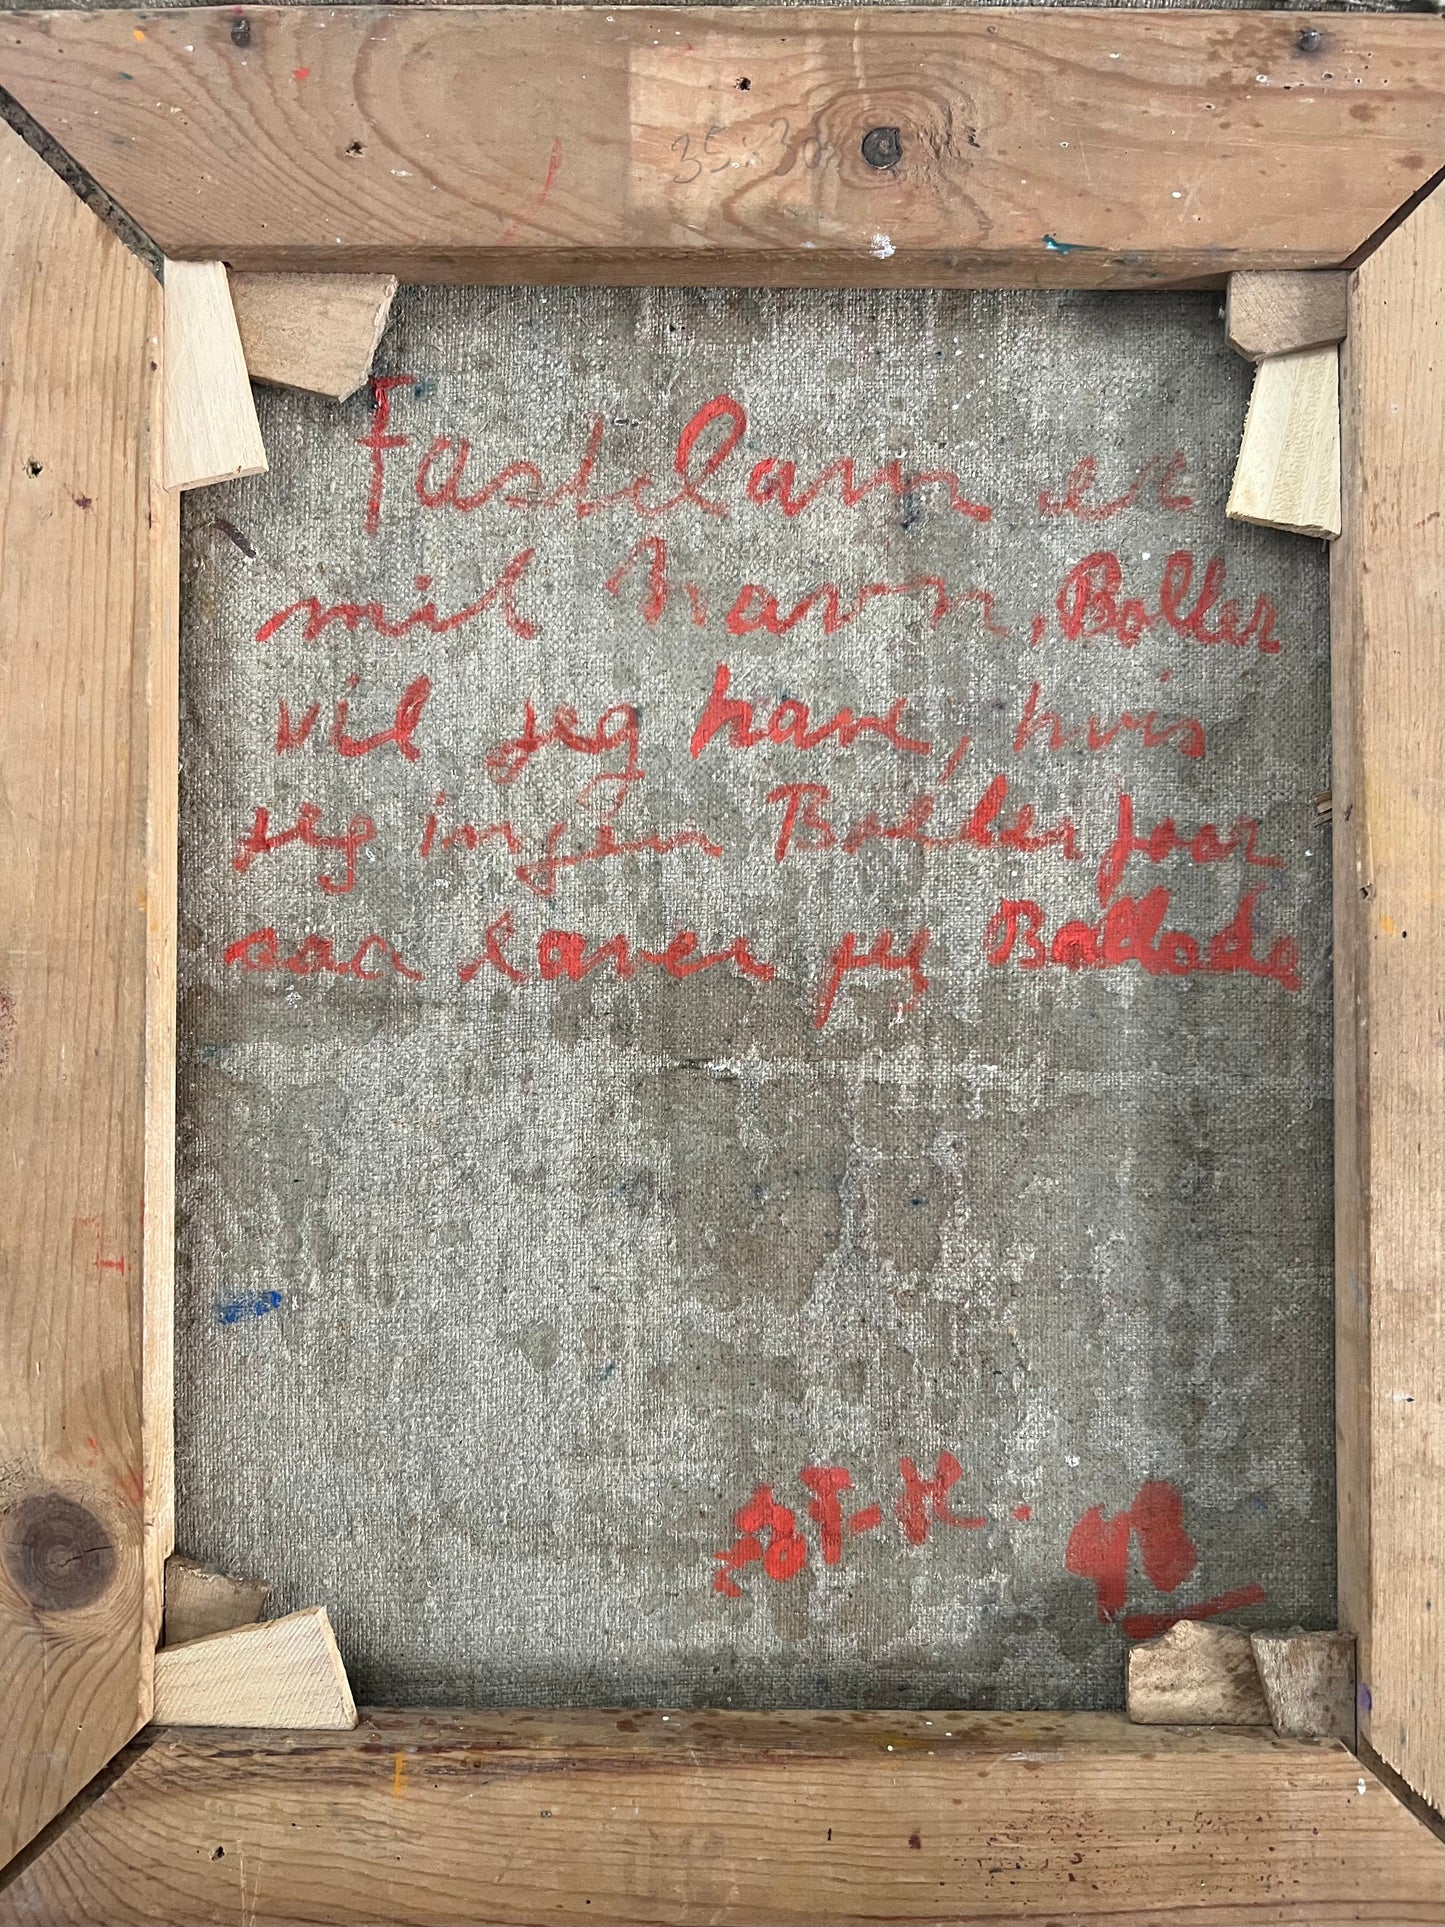 35x30
Fastelavn er
mit Navn, Boller
vil jeg have, hvis
jeg ingen Boller faar
saa laver jeg Ballade
T-K. 48